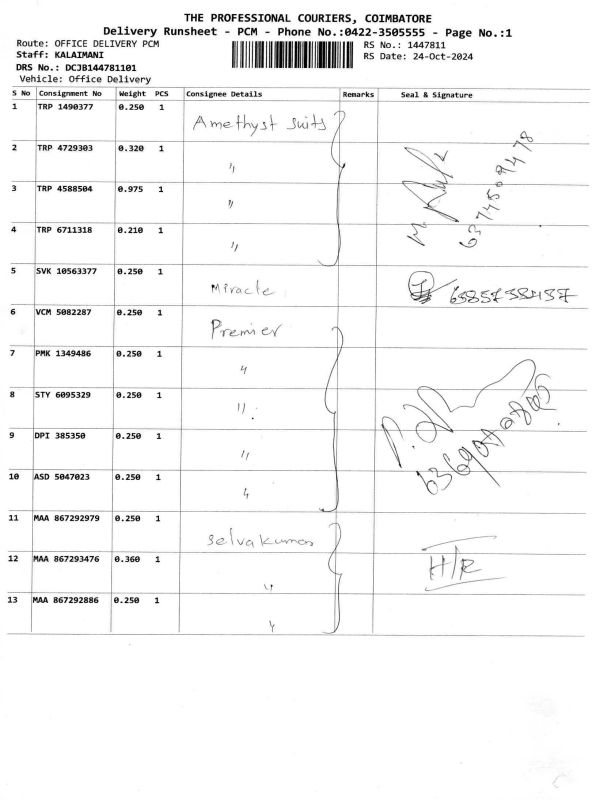 THE PROFESSIONAL COURIERS, COIMBATORE
Delivery Runsheet - PCM - Phone No.:0422-3505555 - Page No.:1
Route: OFFICE DELIVERY PCM RS No.: 1447811
Staff: KALAIMANI RS Date: 24-Oct-2024
DRS No.: DCJB144781101
Vehicle: Office Delivery
S No Consignment No Weight PCS Consignee Details Remarks Seal & Signature
1 TRP 1490377 0.250 1 Amethyst suits
2 TRP 4729303 0.320 1 "
3 TRP 4588504 0.975 1 "
4 TRP 6711318 0.210 1 "
5 SVK 10563377 0.250 1 Miracle
6 VCM 5082287 0.250 1 Premier
7 PMK 1349486 0.250 1 "
8 STY 6095329 0.250 1 "
9 DPI 385350 0.250 1 "
10 ASD 5047023 0.250 1 "
11 MAA 867292979 0.250 1 Selvakumar
12 MAA 867293476 0.360 1 " H/R
13 MAA 867292886 0.250 1 "